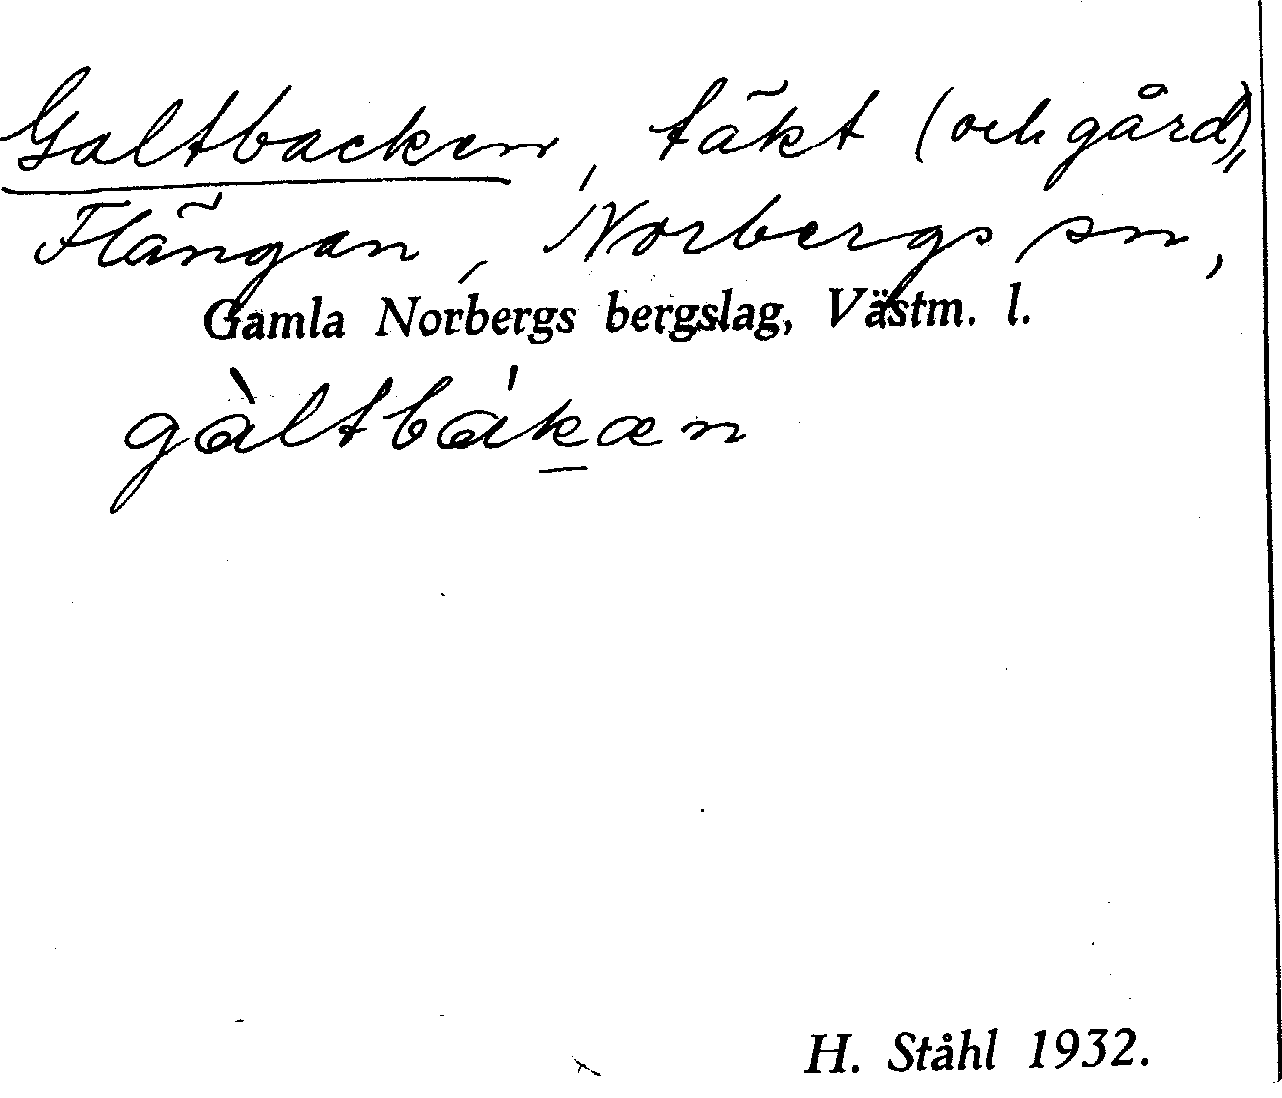 Galtbacken, täkt (och gård),
Flängan, Norbergs sn,
Gamla Norbergs bergslag, Västm. l.
gàltbákæn
H. Ståhl 1932.